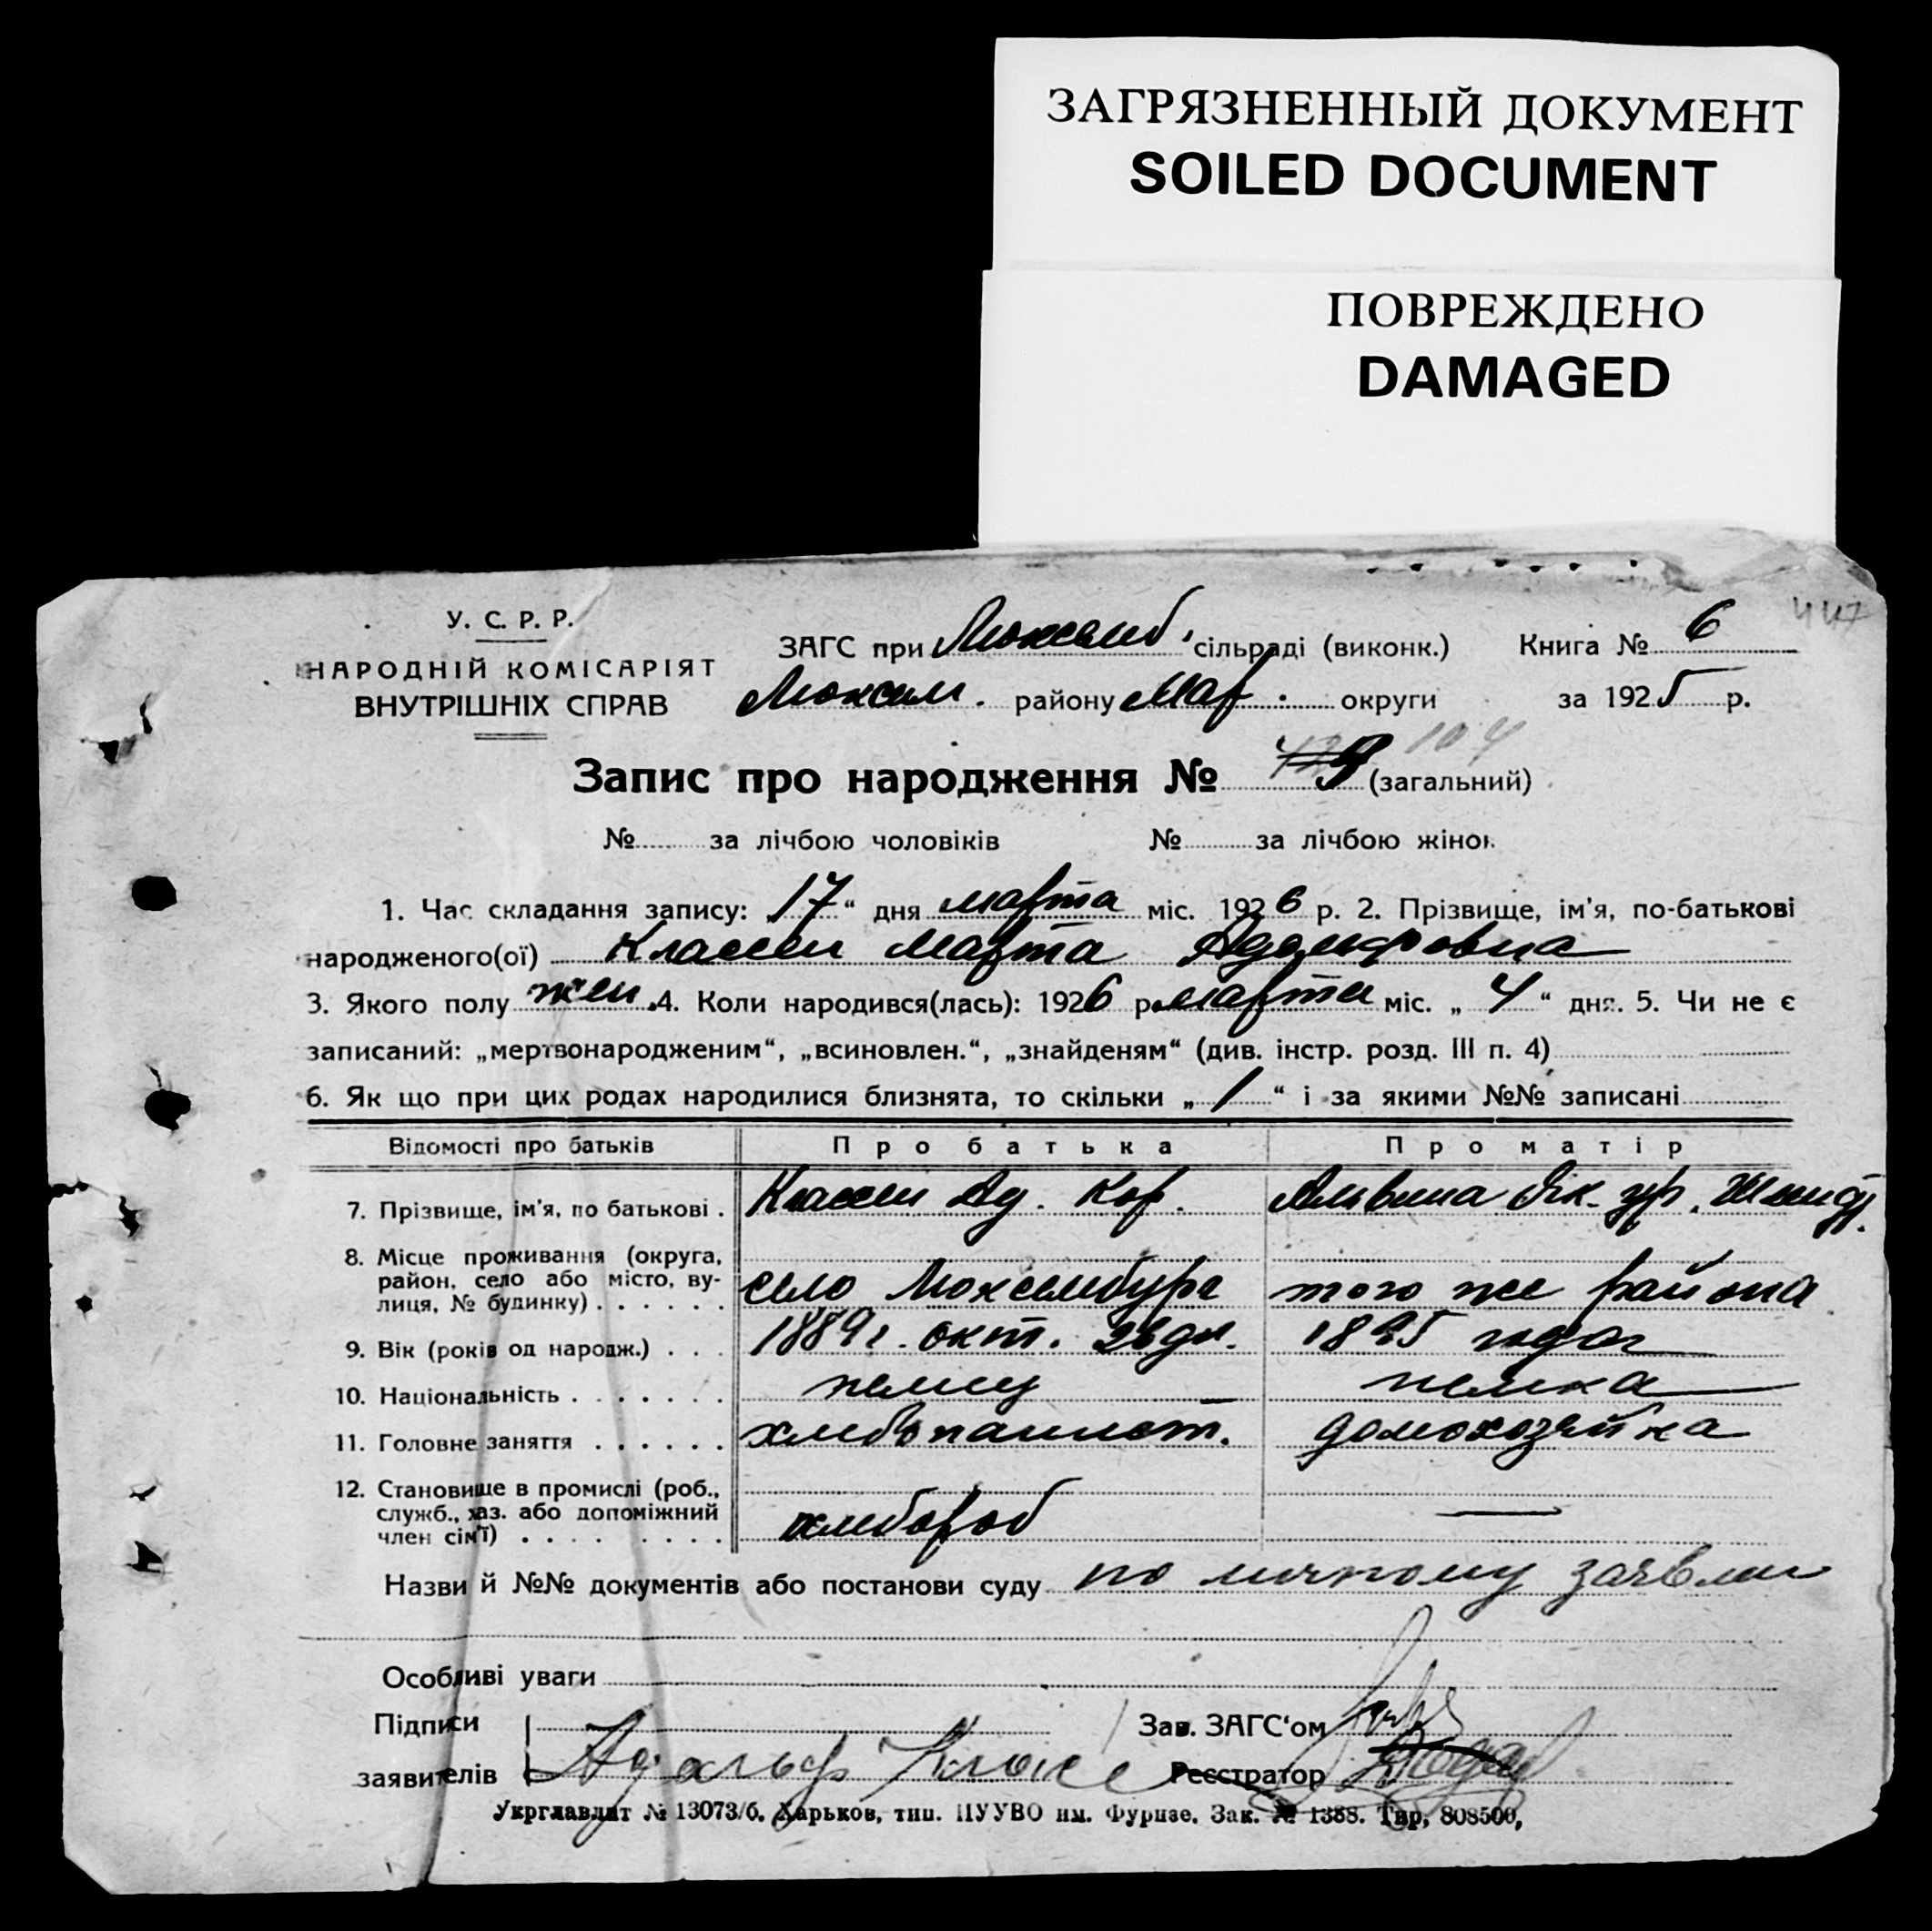 ЗАГРЯЗНЕННЫЙ ДОКУМЕНТ
SOILED DOCUMENT
ПОВРЕЖДЕНО
DAMAGED
447
У. С. Р. Р.
НАРОДНІЙ КОМІСАРІЯТ
ВНУТРІШНІХ СПРАВ
ЗАГС при Люксемб. сільраді (виконк.) Книга № 6
Люксем. району Мар. округи за 1925 р.
Запис про народження № 9 (загальний) 104
№ за лічбою чоловіків № за лічбою жінок
1. Час складання запису: „17“ дня марта міс. 1926 р. 2. Прізвище, ім'я, по-батькові
народженого(ої) Классен Марта Адольфовна
3. Якого полу жен. 4. Коли народився(лась): 1926 р. марта міс. „4“ дня. 5. Чи не є
записаний: „мертвонародженим“, „всиновлен.“, „знайденям“ (див. інстр. розд. III п. 4)
6. Як що при цих родах народилися близнята, то скільки „1“ і за якими №№ записані
Відомості про батьків Про батька Про матір
7. Прізвище, ім'я, по батькові . Классен Ад. Кор. Альвина Як. ур. Шмидт.
8. Місце проживання (округа,
район, село або місто, ву-
лиця, № будинку) . . . . . . село Люксембург того же района
9. Вік (років од народж.) . . . 1889 г. окт. 28 дн. 1895 года
10. Національність . . . . . . . немец немка
11. Головне заняття . . . . . . хлебопашест. домохозяйка
12. Становище в промислі (роб.,
служб., хаз. або допоміжний
член сім'ї) . . . . . . . . хлебороб —
Назви й №№ документів або постанови суду по личному заявлен
Особливі уваги
Підписи Зав. ЗАГС'ом
заявителів Адольф Класс Реєстратор
Укрглавлит № 13073/б. Харьков, тип. ПУУВО им. Фрунзе. Зак. № 1388. Тир, 808500,